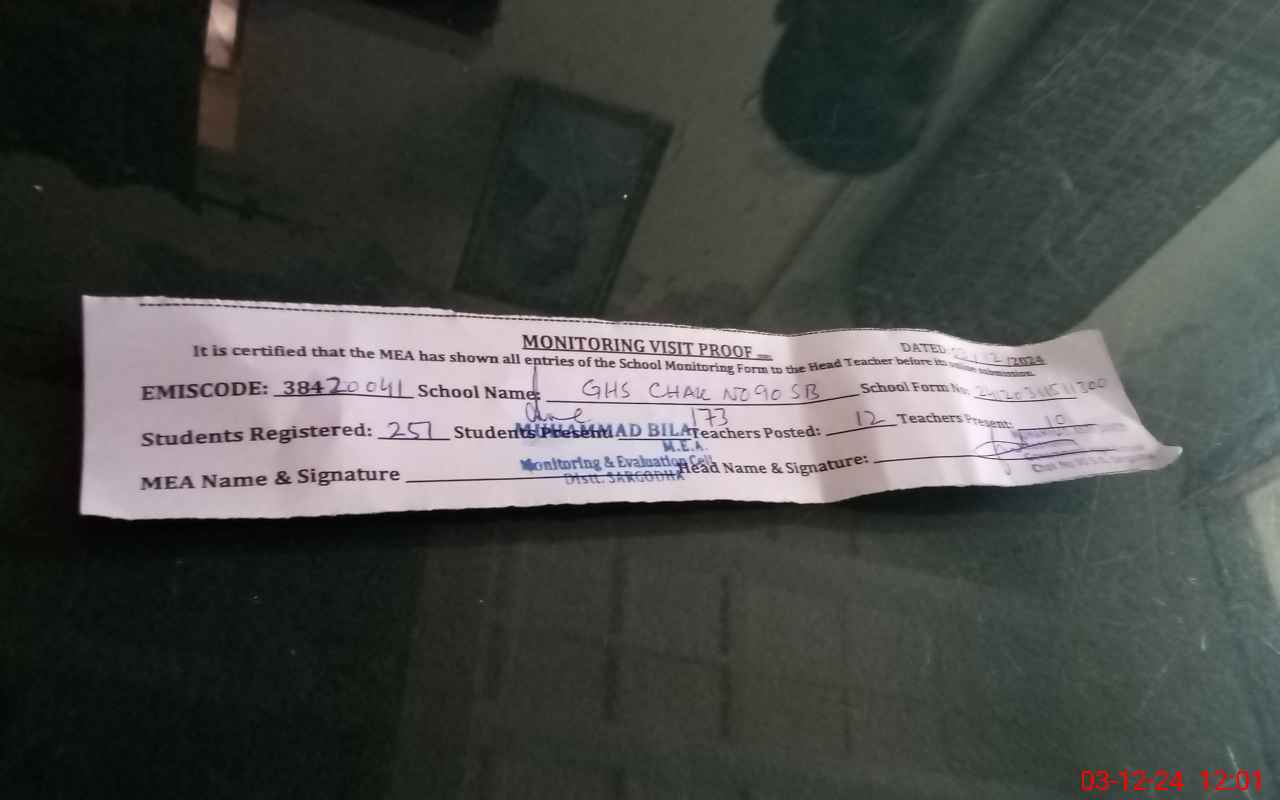 MONITORING VISIT PROOF
DATED /12/2024
It is certified that the MEA has shown all entries of the School Monitoring Form to the Head Teacher before its online submission.
EMISCODE: 38420041 School Name: GHS CHAK NO 90 SB School Form No:
Students Registered: 251 Students Present: 173 Teachers Posted: 12 Teachers Present: 10
MUHAMMAD BILAL
M.E.A.
Monitoring & Evaluation Cell
Distt. SARGODHA
MEA Name & Signature Head Name & Signature:
03-12-24 12:01